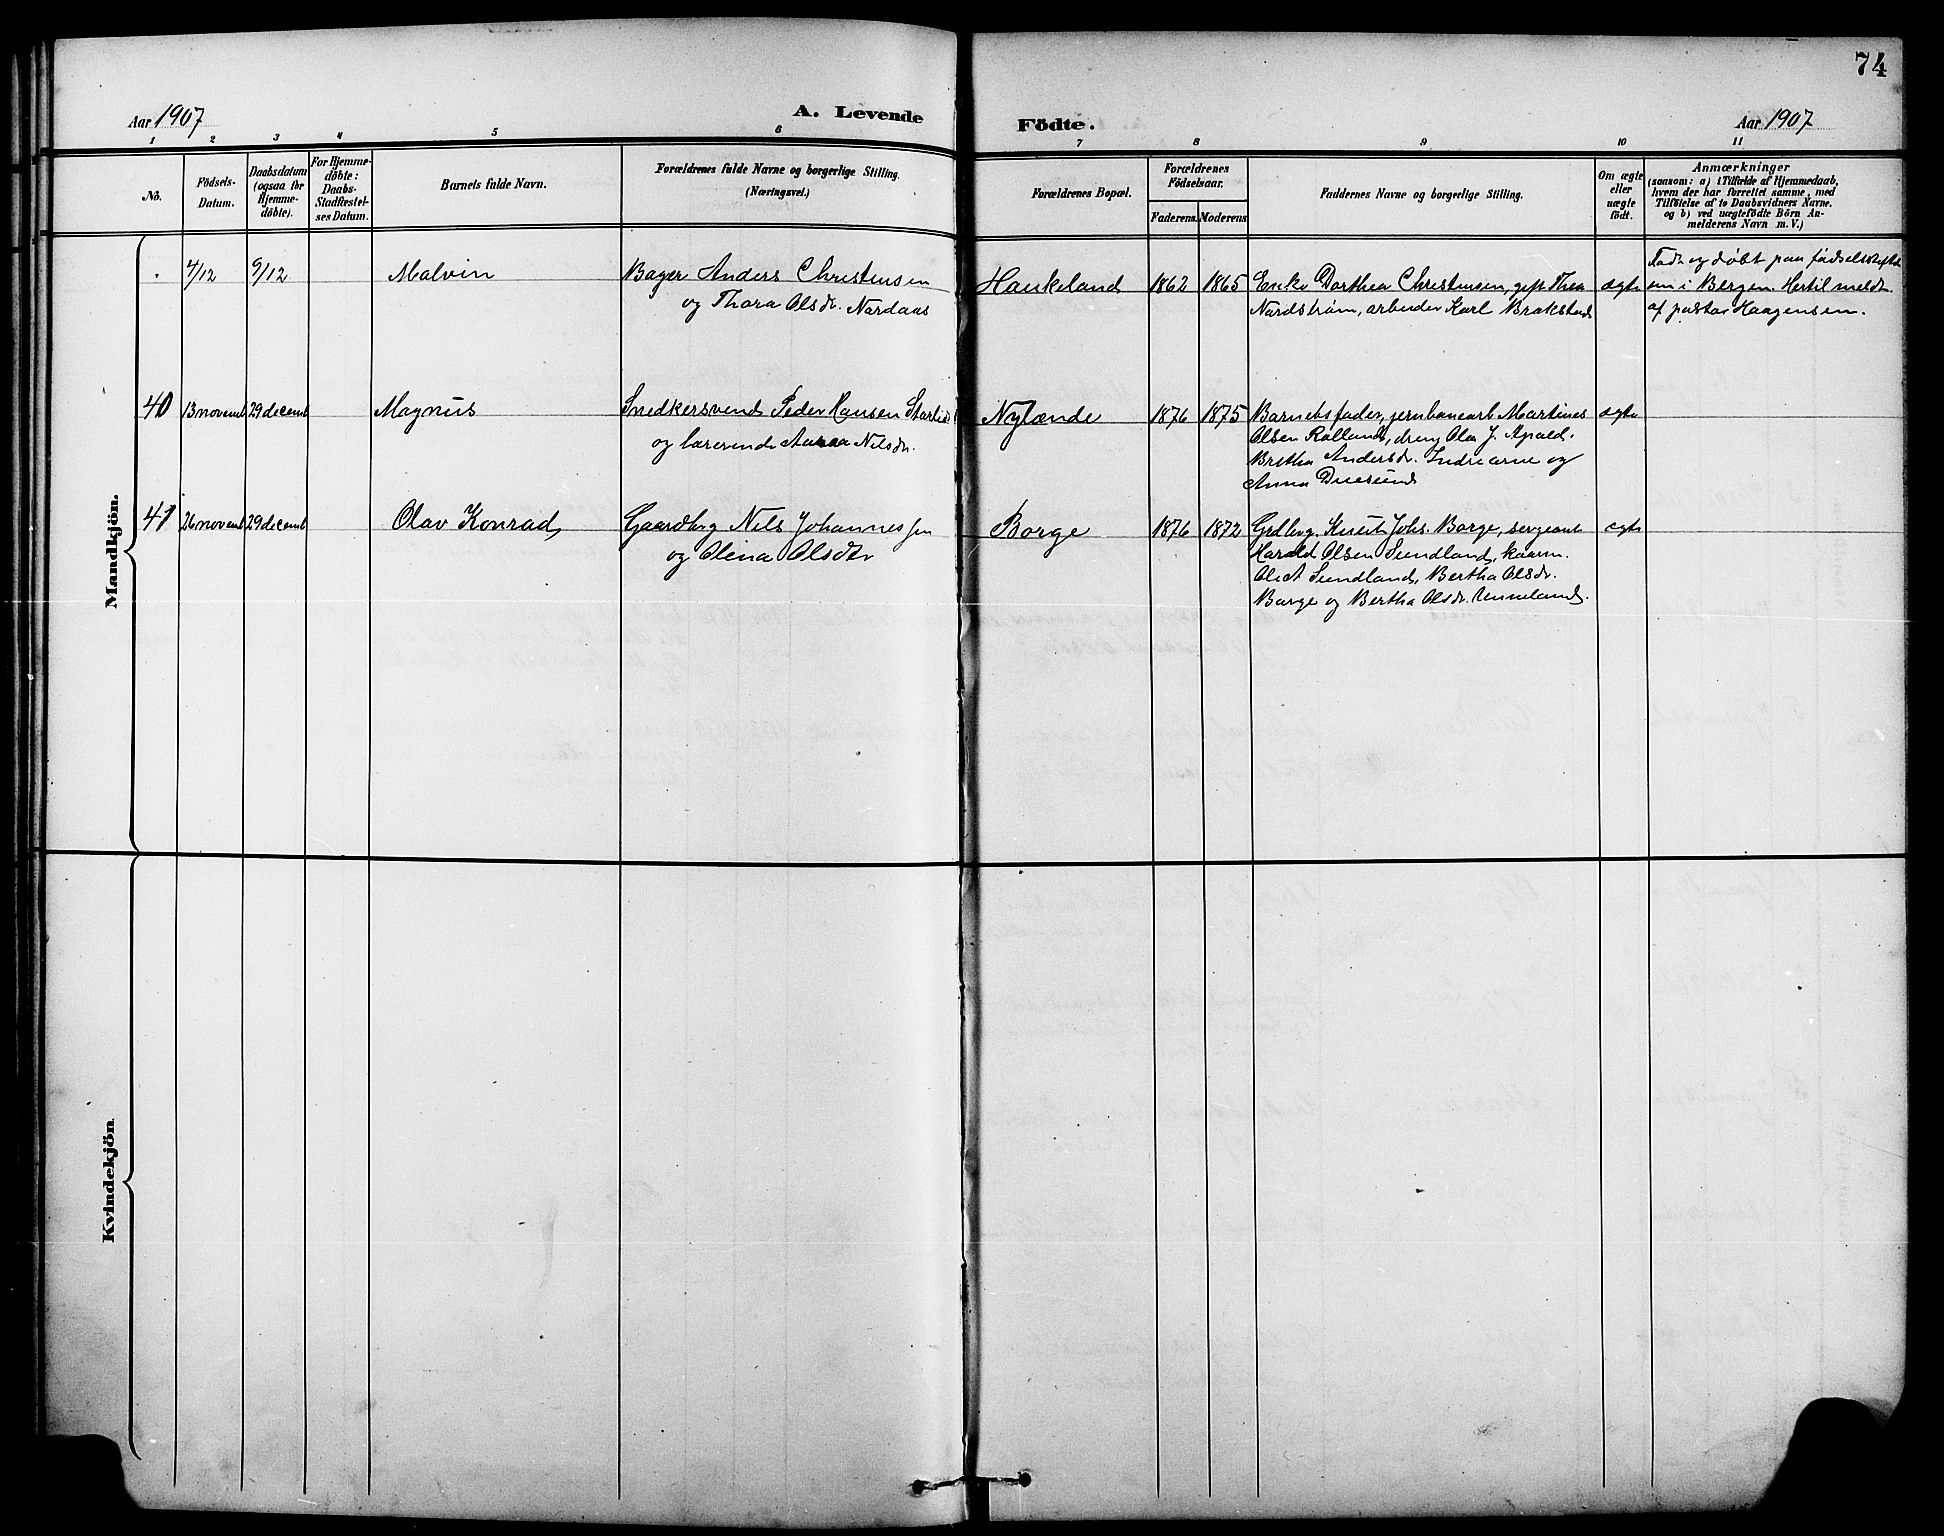 74
Aar 1907
A. Levende
Födte.
Aar 1907
1 2 3 4 5 6 7 8 9 10 11
No.
Födsels-
Datum.
Daabsdatum
(ogsaa for
Hjemme-
döbte).
For Hjemme-
döbte:
Daabs-
Stadfæstel-
ses Datum.
Barnets fulde Navn.
Forældrenes fulde Navne og borgerlige Stilling.
(Næringsvei.)
Forældrenes Bopæl.
Forældrenes
Födselsaar.
Faderens. Moderens
Faddernes Navne og borgerlige Stilling.
Om ægte
eller
uægte
födt.
Anmærkninger
(saasom: a) i Tilfælde af Hjemmedaab,
hvem der har forrettet samme, med
Tilföielse af to Daabsvidners Navne.
og b) ved uægtefödte Börn An-
melderens Navn m. V.)
Mandkjön.
4/12 9/12 Malvin
Bager Anders Christensen
og Thora Olsdr. Nordaas
Haukeland 1862 1865
Enke Dorthea Christensen, gift Thea
Nordstrøm, arbeider Karl Brakstad
ægte
Født og døbt paa fødselsstift
sen i Bergen. Hertil meldt
af pastor Haagensen.
40 13 novemb 29 decemb Magnus
Snedkersvend Peder Hansen
og lærerinde Nilsdr.
Nylænde 1876 1875
Barnets fader, jernbanearb Martines
Olsen Rolland, dreng Ola J. Apald.
Bertha Andersdr. Indrearne og
Anna
ægte
41 26 novemb 29 decemb Olav Konrad
Gaardbrg Nils Johannessen
og Olina Olsdtr
Borge 1876 1872
Grdbrg. Knut Johs. Borge, sergeant
Harald Olsen Sundland, kaarm.
Ole A Sundland, Bertha Olsdr.
Borge og Bertha Olsdr. Unneland.
ægte
Kvindekjön